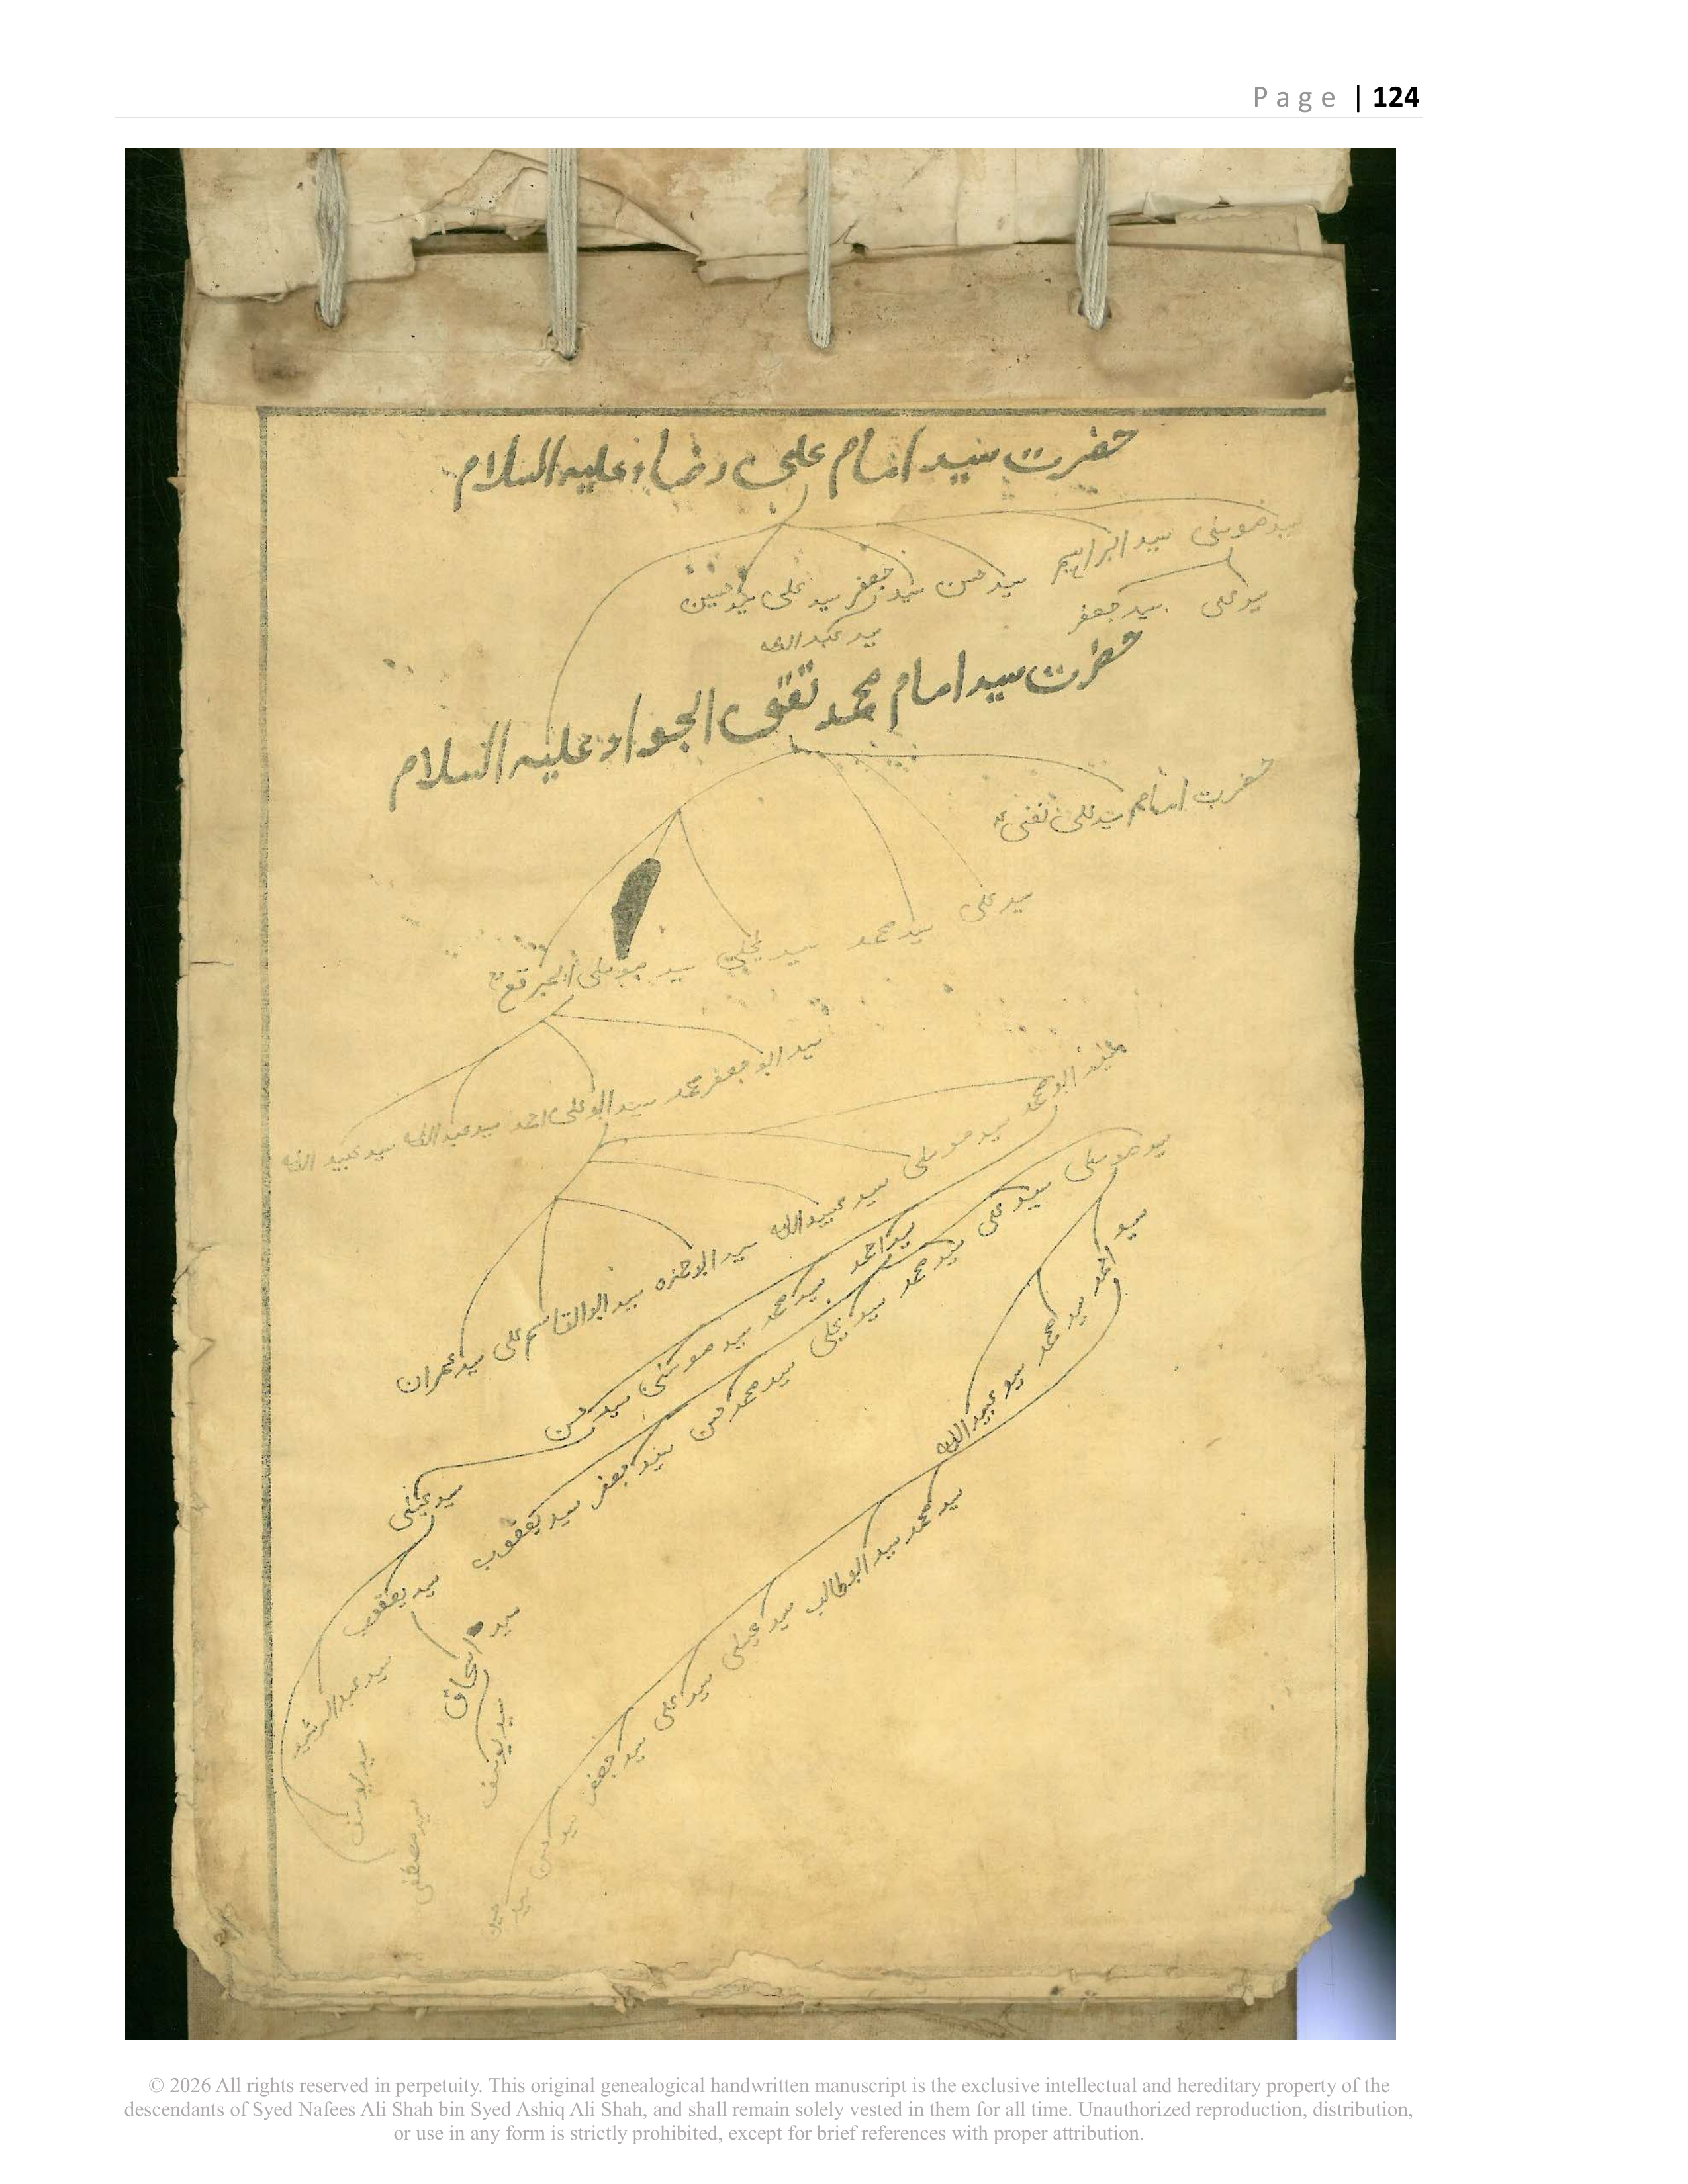 Page | 124
حضرت سید امام علی رضاء علیہ السلام
سید موسٰی سید ابراہیم سید حسن سید جعفر سید علی سید حسین
سید علی سید جعفر
سید عبداللہ
حضرت سید امام محمد تقی الجواد علیہ السلام
حضرت امام سید علی نقی
سید علی سید محمد سید یحٰیی سید موسٰی المبرقع
سید ابو جعفر محمد سید ابو علی احمد سید عبداللہ سید عبید اللہ
سید ابو محمد سید موسٰی سید عبیداللہ سید ابو حمزہ سید ابوالقاسم علی سید عمران
سید احمد سید محمد سید موسٰی سید حسن
سید عیسٰی
سید موسٰی سید علی سید محمد سید علی سید محمد حسن سید جعفر سید یعقوب
سید احمد سید محمد سید عبیداللہ
سید محمد سید ابوطالب سید عیسٰی سید علی سید جعفر سید حسن سید حسین
سید یعقوب
سید اسحاق
سید عبدالرشید
سید یوسف
سید یوسف
سید مصطفٰی
© 2026 All rights reserved in perpetuity. This original genealogical handwritten manuscript is the exclusive intellectual and hereditary property of the
descendants of Syed Nafees Ali Shah bin Syed Ashiq Ali Shah, and shall remain solely vested in them for all time. Unauthorized reproduction, distribution,
or use in any form is strictly prohibited, except for brief references with proper attribution.